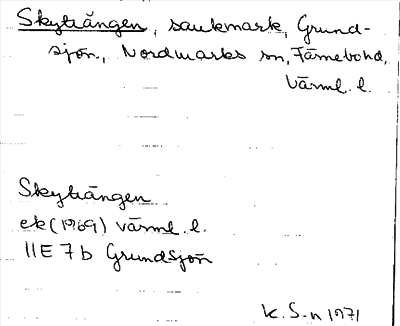 Skytiängen, sankmark, Grund-
sjön, Nordmarks sn, Färnebo hd,
Värml. l.
Skytiängen
ek (1969) Värml. l.
11E 7b Grundsjön
K. S-n 1971